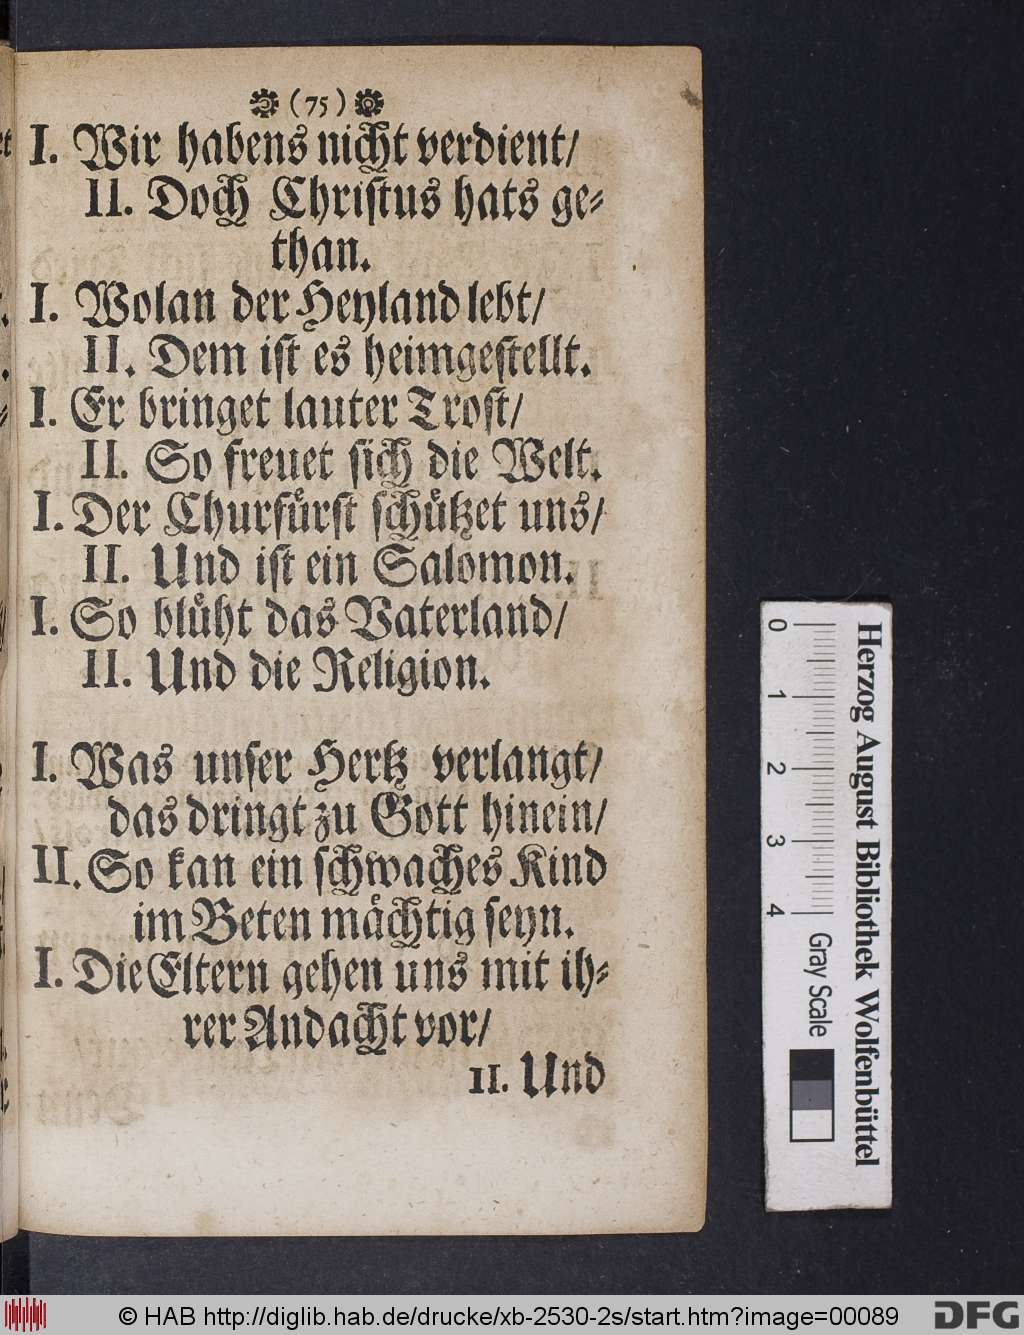 (75)
I. Wir habens nicht verdient/
II. Doch Christus hats ge-
than.
I. Wolan der Heyland lebt/
II. Dem ist es heimgestellt.
I. Er bringet lauter Trost/
II. So freuet sich die Welt.
I. Der Churfürst schützet uns/
II. Und ist ein Salomon.
I. So blüht das Vaterland/
II. Und die Religion.
I. Was unser Hertz verlangt/
das dringt zu Gott hinein/
II. So kan ein schwaches Kind
im Beten mächtig seyn.
I. Die Eltern gehen uns mit ih-
rer Andacht vor/
II. Und
0 1 2 3 4
Gray Scale
Herzog August Bibliothek Wolfenbüttel
© HAB http://diglib.hab.de/drucke/xb-2530-2s/start.htm?image=00089
DFG